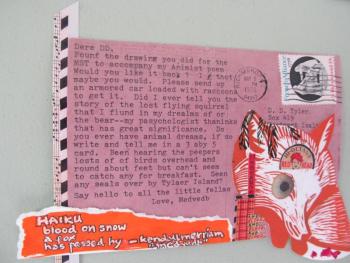 Dere DD,
Found the drawing you did for the
MST to accompany my Animist poem
Would you like it back ? I fig that
maybe you would. Please send up
an armored car loaded with raccoons
to get it. Did I ever tell you the
story of the lost flying squirrel
that I flund in my dreams of or
the bear--my pasyonologist thainks
that has great significance. Do
you ever have animal dreams, if so
write and tell me in a 3 aby 5
card. Been hearing the peepers
losts of of birds overhead and
round about feet but can't seem
to catch any for breakfast. Seen
any meals over by Tylaer Island?
Say hello to all the little fellas
Love, Medvedb
D. D. Tyler
Box
HAIKU
blood on snow
a fox
has passed by - kendall merriam
"medvedb"